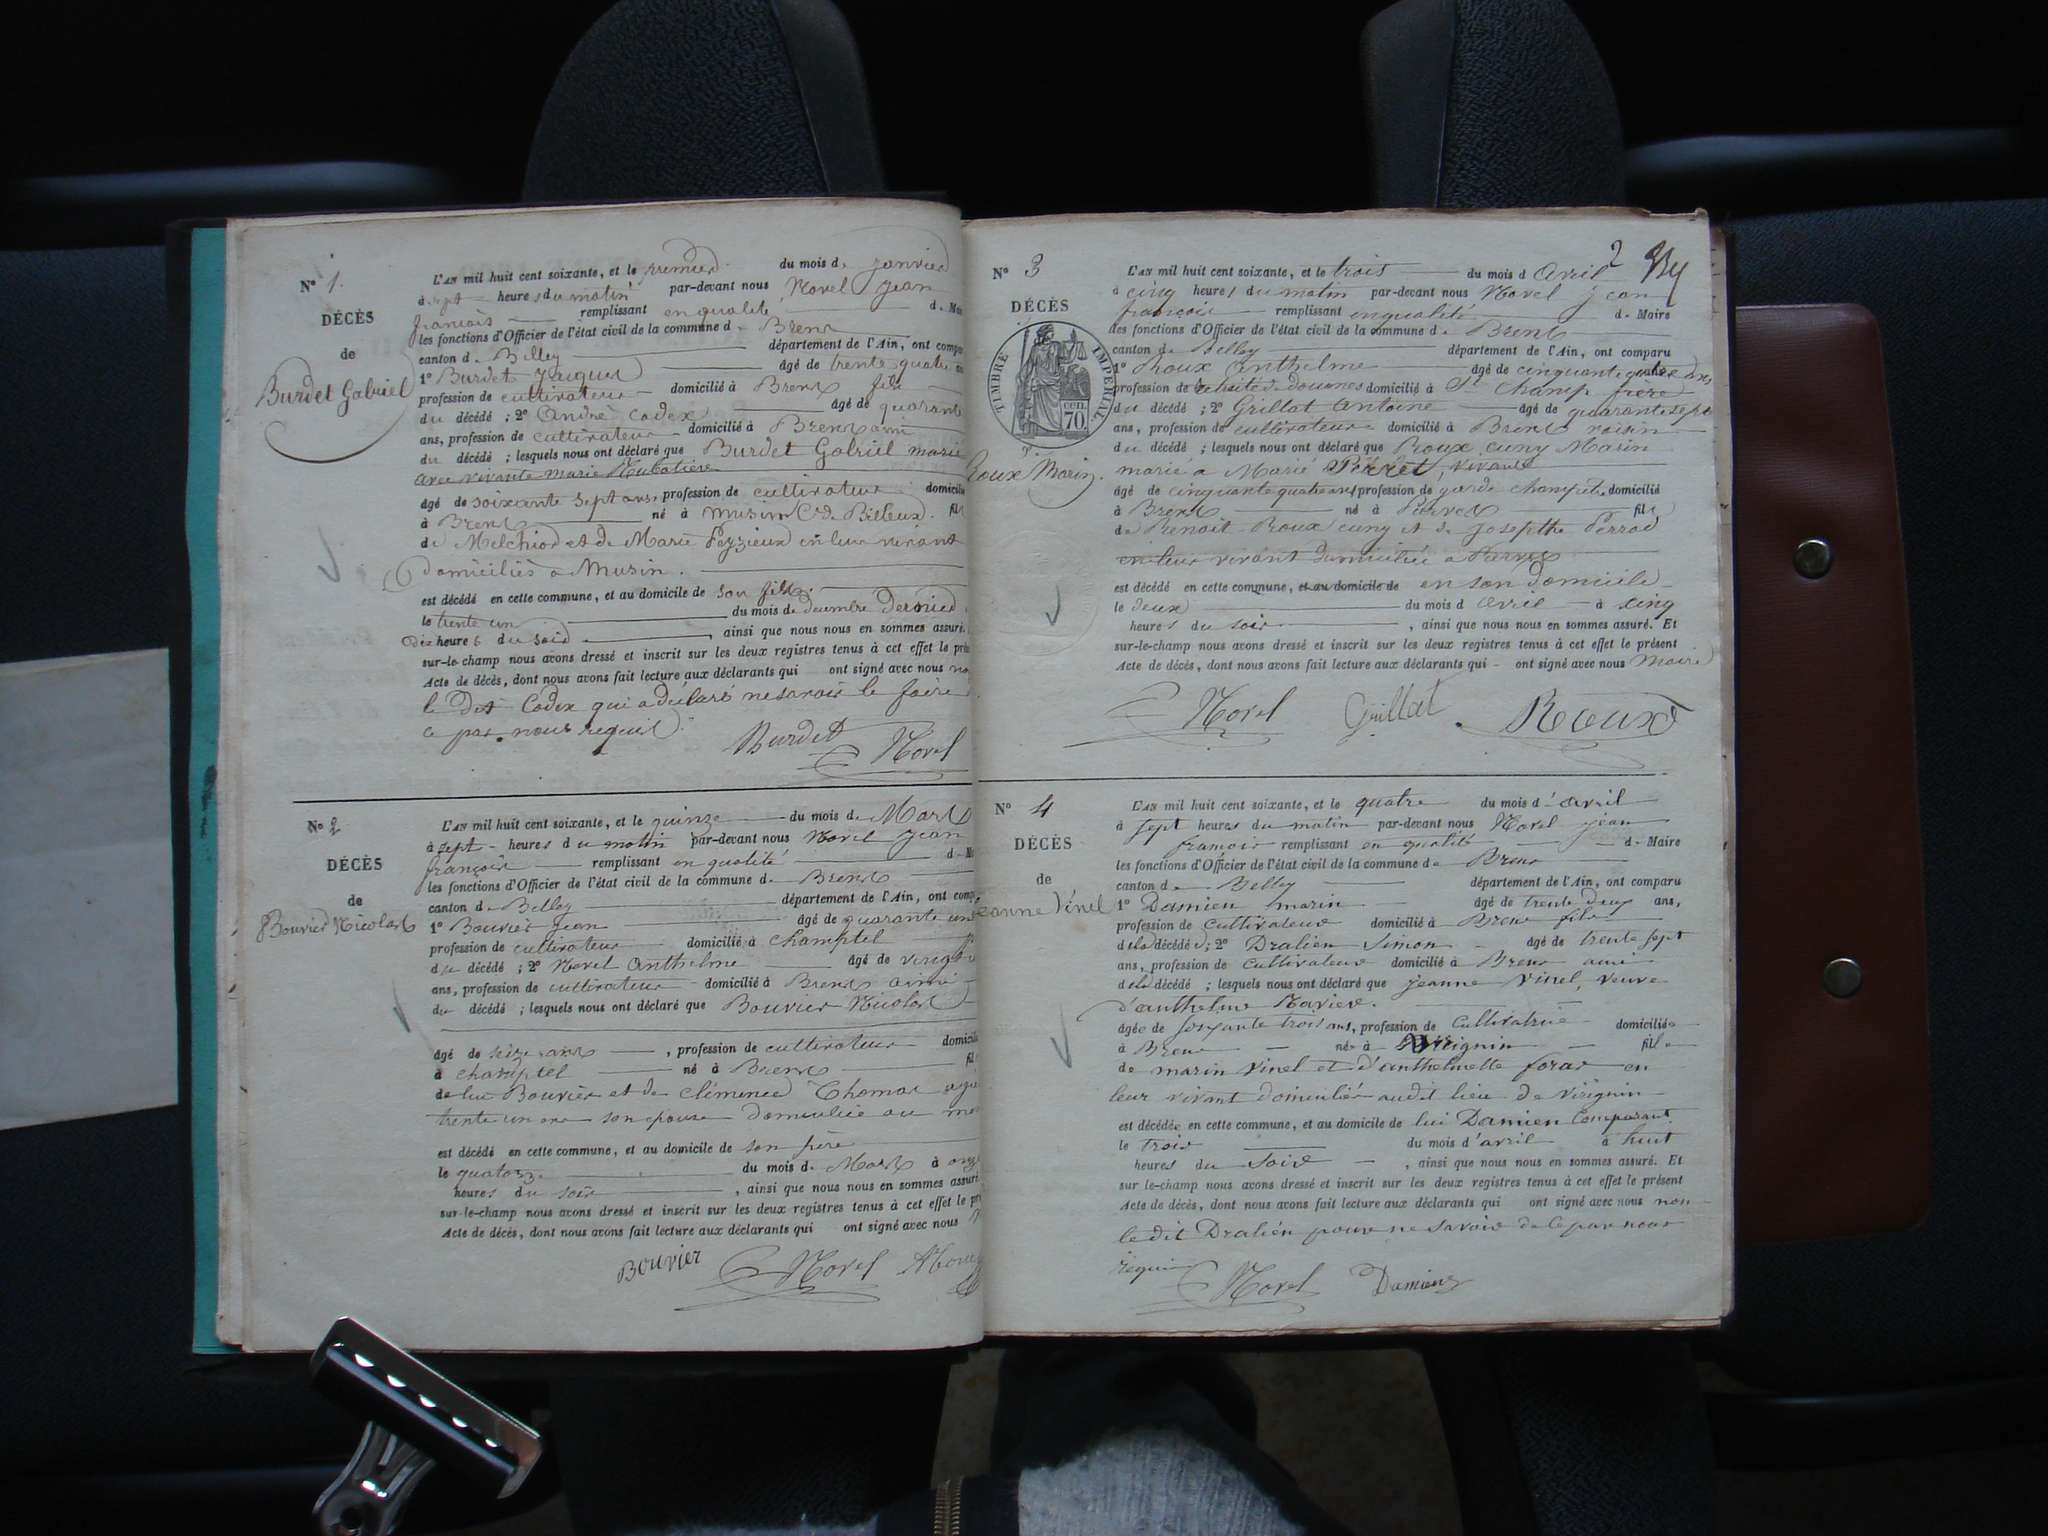 N° 1.
DÉCÈS
de
Burdet Gabriel
L'AN mil huit cent soixante, et le premier du mois de janvier
à sept heures du matin par-devant nous Morel jean
françois remplissant en qualité de
les fonctions d'Officier de l'état civil de la commune de Brens
canton de Belley département de l'Ain, ont compa
1° Burdet Jacques âgé de trente quatre
profession de cultivateur domicilié à Brens fils
du décédé ; 2° André Codex âgé de quarante
ans, profession de cultivateur domicilié à Brens ami
du décédé ; lesquels nous ont déclaré que Burdet Gabriel marié
avec vivante marie
âgé de soixante sept ans, profession de cultivateur domicilié
à Brens né à Musin Cne de Billeux. fils
de Melchior et de Marie Peyzieux en leur vivant
domiciliés a Musin.
est décédé en cette commune, et au domicile de son fils.
le trente un du mois de décembre dernier
dix heures du soir, ainsi que nous nous en sommes assuré.
sur-le-champ nous avons dressé et inscrit sur les deux registres tenus à cet effet le pré
Acte de décès, dont nous avons fait lecture aux déclarants qui ont signé avec nous no
le dit Codex qui a déclaré ne savoir le faire
a par nous requis.
Burdet Morel
N° 2
DÉCÈS
de
Bouvier Nicolas
L'AN mil huit cent soixante, et le quinze du mois de Mars
à sept heures du matin par-devant nous Morel jean
françois remplissant en qualité de
les fonctions d'Officier de l'état civil de la commune de Brens
canton de Belley département de l'Ain, ont comp
1° Bouvier jean âgé de quarante un
profession de cultivateur domicilié à champtel
du décédé ; 2° Morel anthelme âgé de vingt
ans, profession de cultivateur domicilié à Brens ami
du décédé ; lesquels nous ont déclaré que Bouvier Nicolas
âgé de seize ans, profession de cultivateur domicilié
à champtel né à Brens fil
de lui Bouvier et de clémence Thomas agé
trente un ans son épouse domiciliée au me
est décédé en cette commune, et au domicile de son père
le quatorze du mois de Mars à onz
heures du soir, ainsi que nous nous en sommes assuré
sur-le-champ nous avons dressé et inscrit sur les deux registres tenus à cet effet le pr
Acte de décès, dont nous avons fait lecture aux déclarants qui ont signé avec nous
Bouvier Morel AMorel
2
N° 3
DÉCÈS
TIMBRE IMPÉRIAL
70 cen.
Roux Marin.
L'AN mil huit cent soixante, et le trois du mois d avril
à cinq heures du matin par-devant nous Morel jean
françois remplissant en qualité de Maire
les fonctions d'Officier de l'état civil de la commune de Brens
canton de Belley département de l'Ain, ont comparu
1° Roux Anthelme âgé de cinquante quatre ans
profession de retraité de douanes domicilié à St Champ frère
du décédé ; 2° Grillat Antoine âgé de quarante sept
ans, profession de cultivateur domicilié à Brens voisin
du décédé ; lesquels nous ont déclaré que Roux cuny Marin
marié a Marie Perret, vivante
âgé de cinquante quatre ans, profession de garde champêtre domicilié
à Brens né à Parves fils
de Benoit Roux cuny et de Josepthe Perrod
en leur vivant domicilié a Parves
est décédé en cette commune, et au domicile de en son domicile
le deux du mois d avril à cinq
heures du soir, ainsi que nous nous en sommes assuré. Et
sur-le-champ nous avons dressé et inscrit sur les deux registres tenus à cet effet le présent
Acte de décès, dont nous avons fait lecture aux déclarants qui ont signé avec nous maire
Morel Grillat Roux
N° 4
DÉCÈS
de
Jeanne Vinel
L'AN mil huit cent soixante, et le quatre du mois d'avril
à sept heures du matin par-devant nous Morel jean
françois remplissant en qualité de Maire
les fonctions d'Officier de l'état civil de la commune de Brens
canton de Belley département de l'Ain, ont comparu
1° Damien marin âgé de trente deux ans,
profession de cultivateur domicilié à Brens fils
de la décédée ; 2° Dralien Simon âgé de trente sept
ans, profession de cultivateur domicilié à Brens ami
de la décédé ; lesquels nous ont déclaré que jeanne vinel, veuve
d'anthelme
âgée de soixante trois ans, profession de cultivatrice domiciliée
à Brens née à Virignin fille
de marin vinel et d'anthelmette foras en
leur vivant domiciliés audit lieu de virignin
est décédée en cette commune, et au domicile de lui Damien comparant
le trois du mois d'avril à huit
heures du soir, ainsi que nous nous en sommes assuré. Et
sur le-champ nous avons dressé et inscrit sur les deux registres tenus à cet effet le présent
Acte de décès, dont nous avons fait lecture aux déclarants qui ont signé avec nous non
ledit Dralien pour ne savoir de ce par nous
requis
Morel Damien